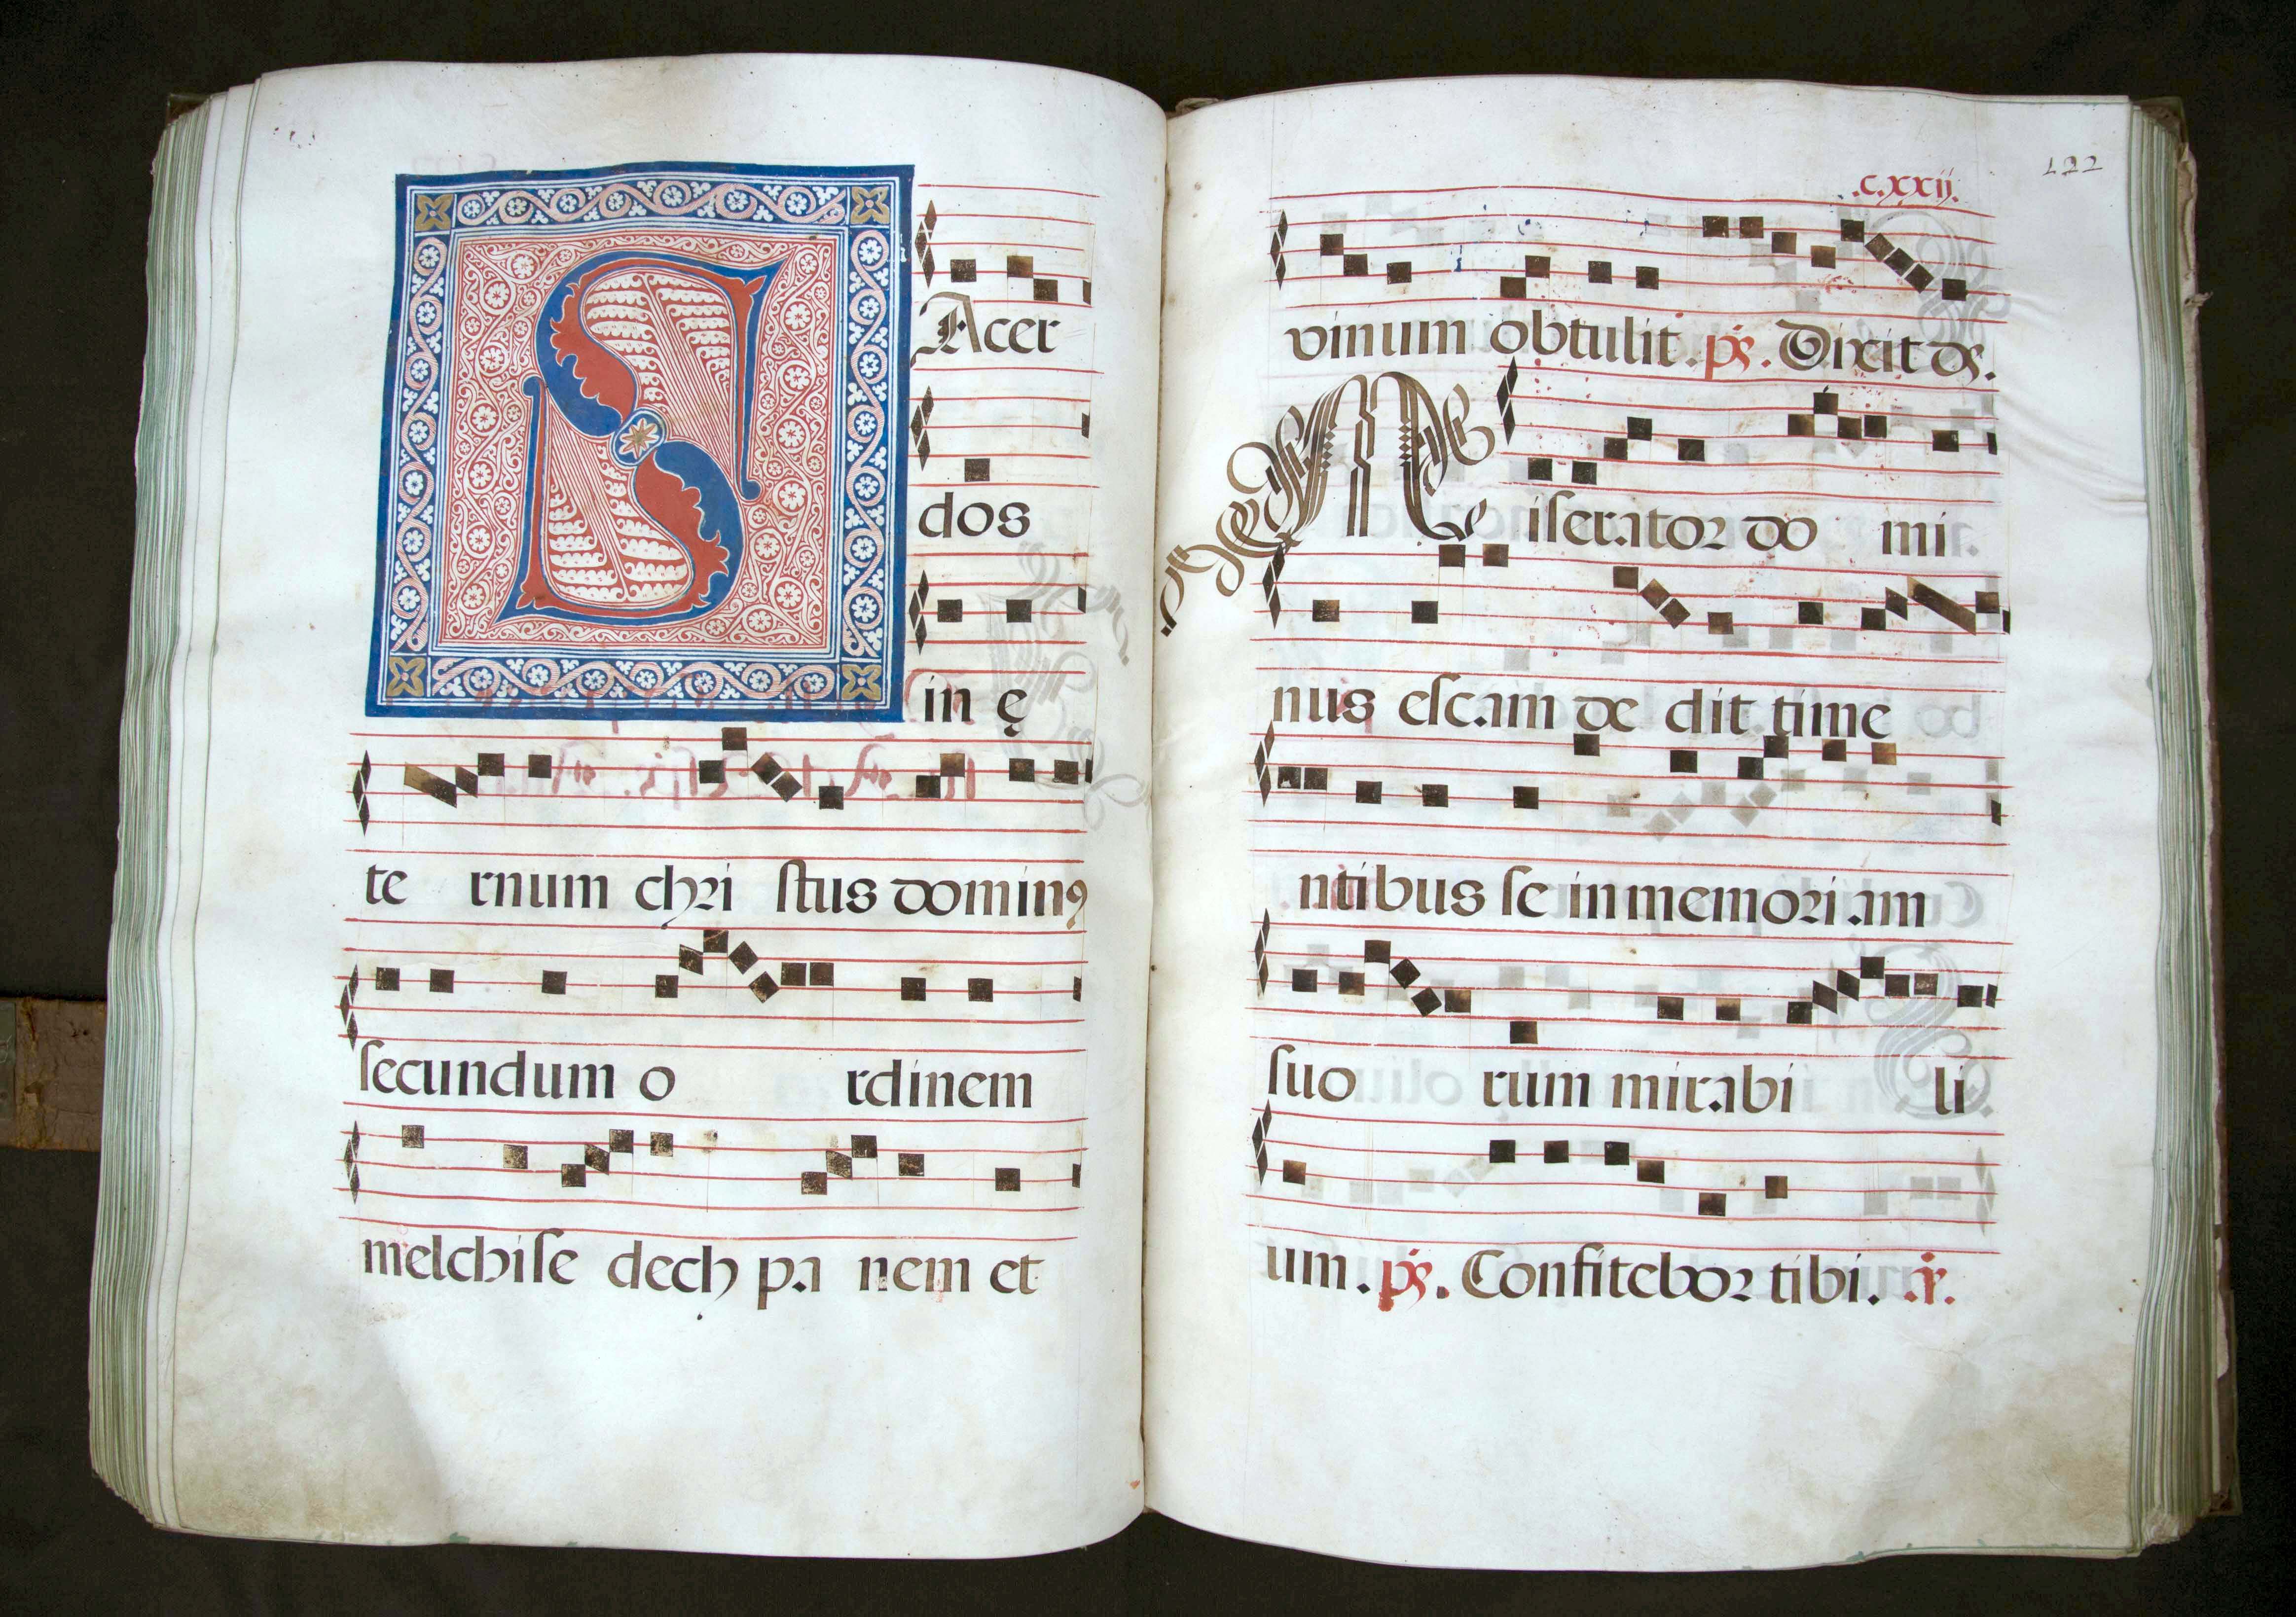 SAcer
dos
in ę
te rnum chri stus dominꝰ
secundum o rdinem
melchise dech pa nem et
.c.xxij.
122
vinum obtulit. ps. Dixit ds.
Miserator do mi
nus escam de dit time
ntibus se in memoriam
suo rum mirabi li
um. ps. Confitebor tibi.